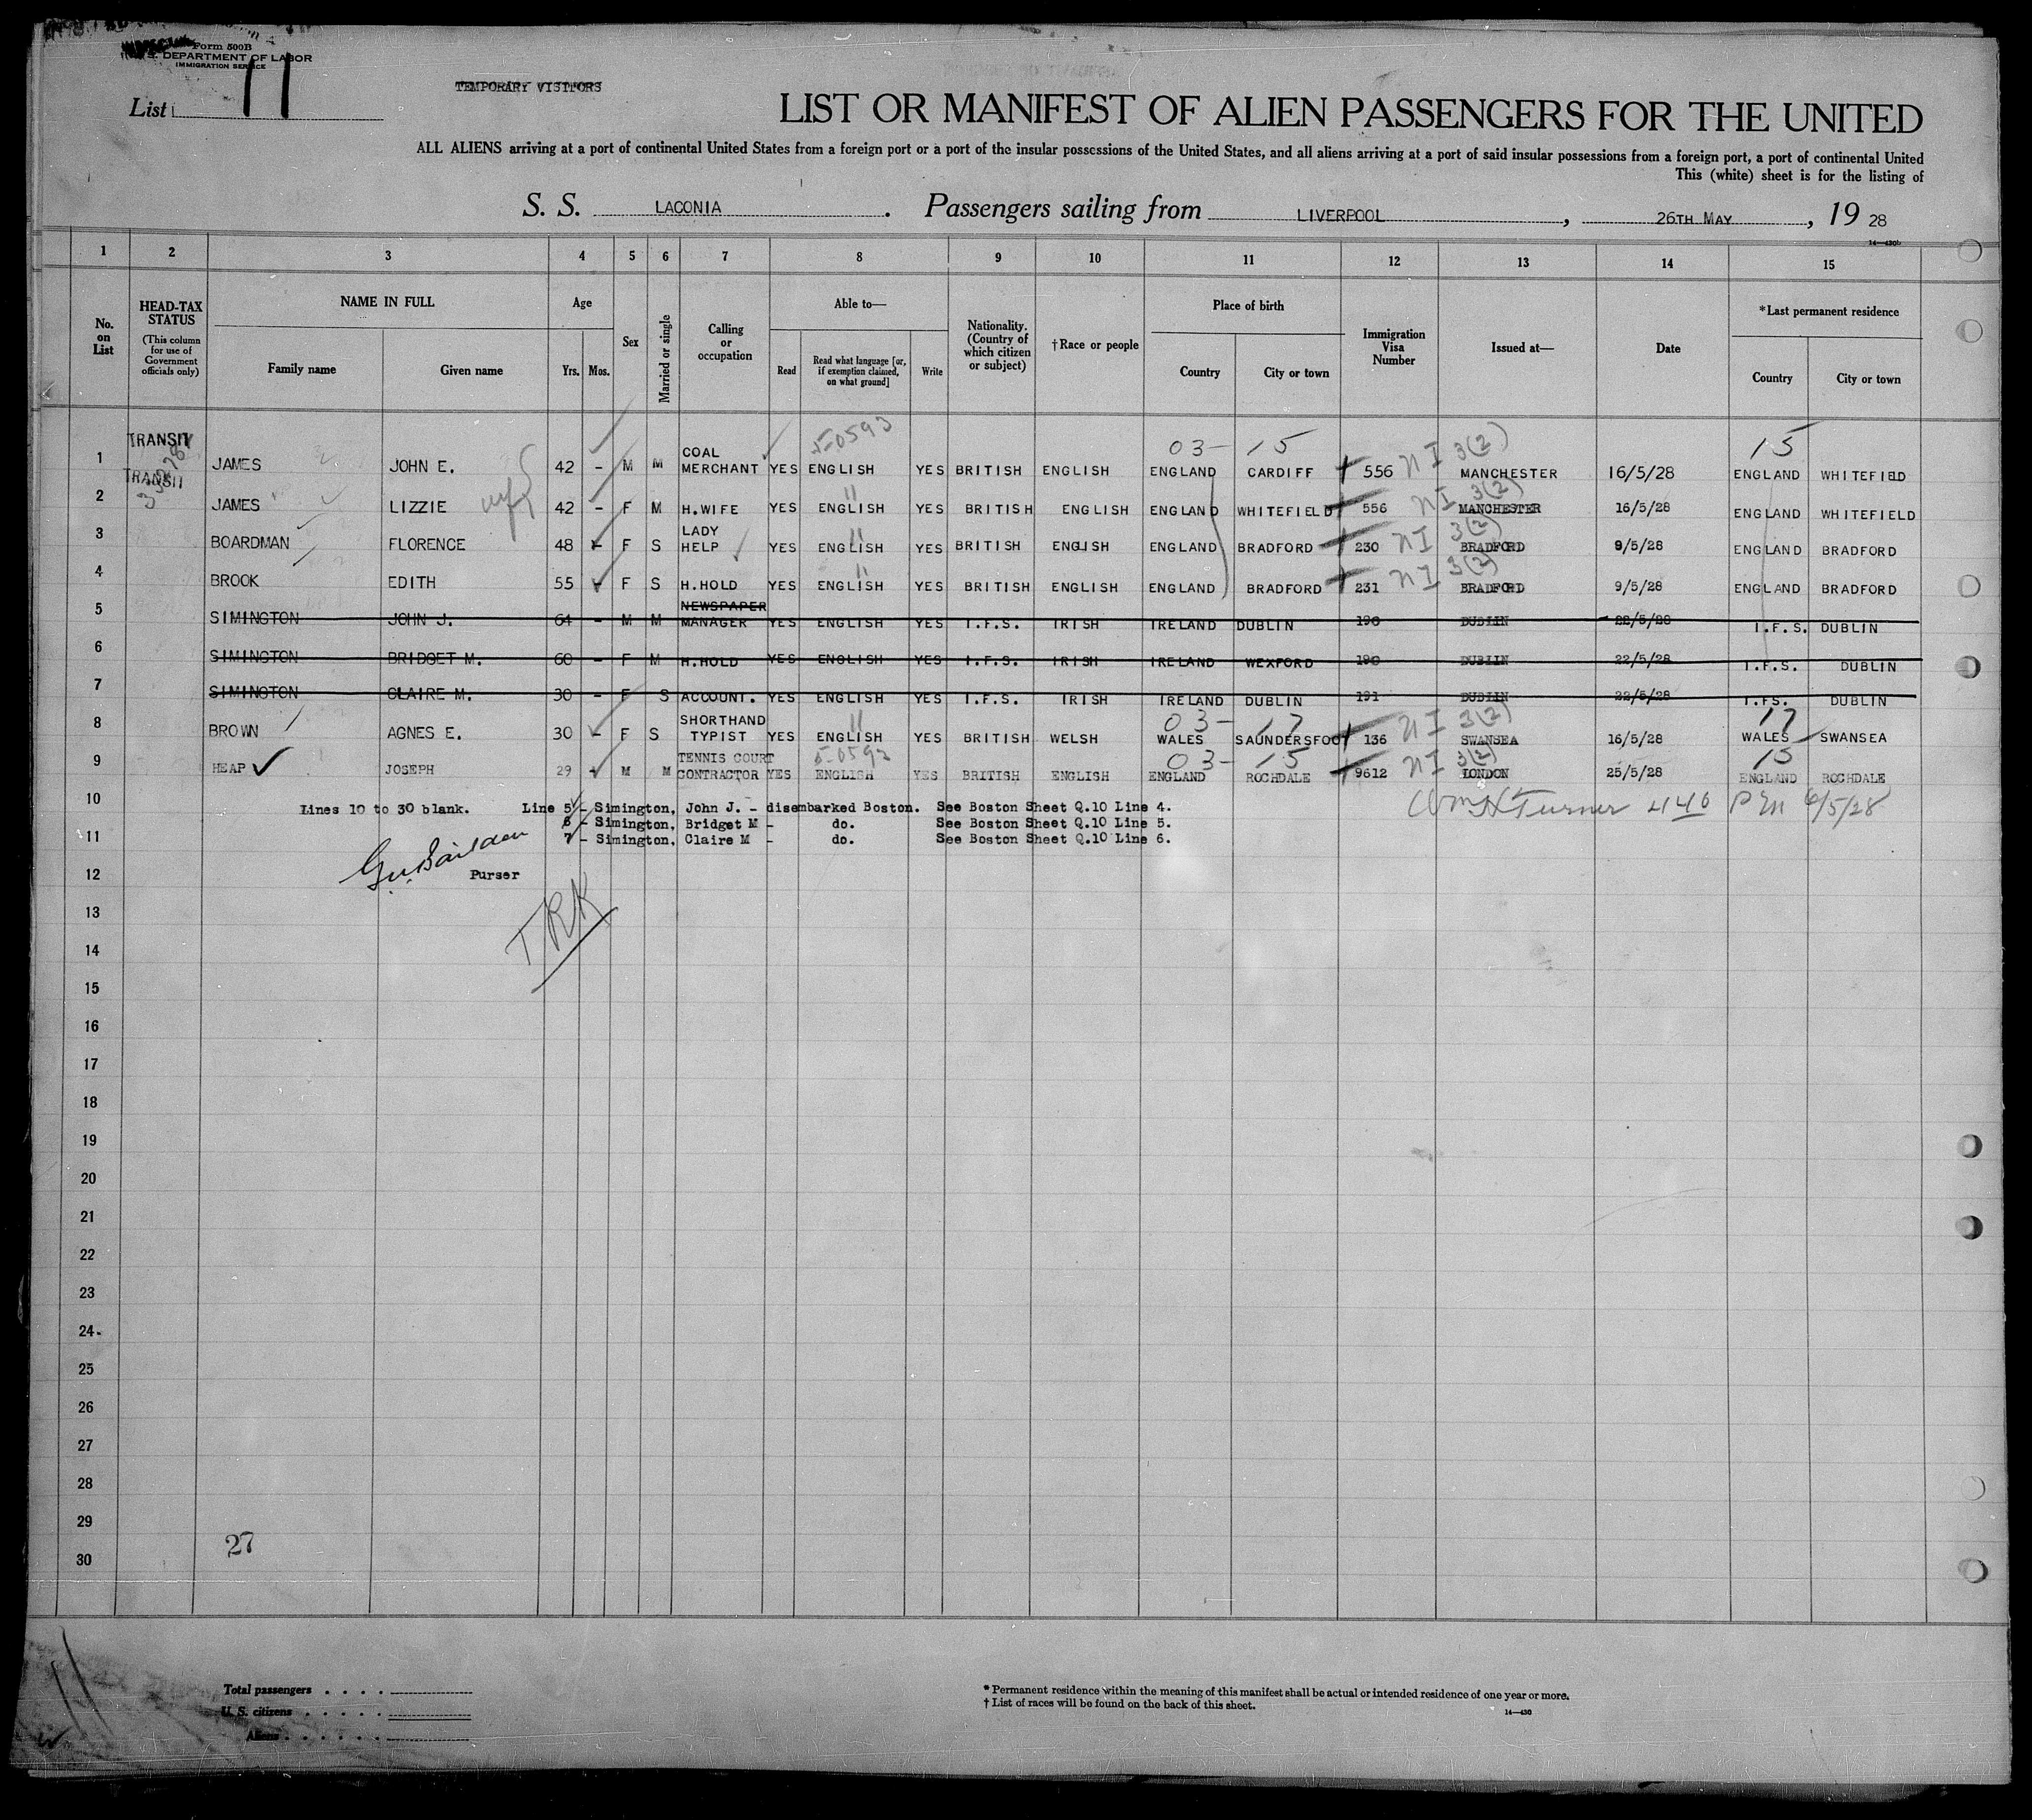 Form 500B
U. S. DEPARTMENT OF LABOR
IMMIGRATION SERVICE
List 11
TEMPORARY VISITORS
LIST OR MANIFEST OF ALIEN PASSENGERS FOR THE UNITED
ALL ALIENS arriving at a port of continental United States from a foreign port or a port of the insular possessions of the United States, and all aliens arriving at a port of said insular possessions from a foreign port, a port of continental United
This (white) sheet is for the listing of
S. S. LACONIA. Passengers sailing from LIVERPOOL, 26TH MAY, 19 28
14—430b
1 2 3 4 5 6 7 8 9 10 11 12 13 14 15
No. on List
HEAD-TAX STATUS
(This column for use of Government officials only)
NAME IN FULL
Family name Given name
Age
Yrs. Mos.
Sex
Married or single
Calling or occupation
Able to—
Read Read what language [or, if exemption claimed, on what ground] Write
Nationality. (Country of which citizen or subject)
†Race or people
Place of birth
Country City or town
Immigration Visa Number
Issued at—
Date
*Last permanent residence
Country City or town
50593 03- 15 15
1 TRANSIT JAMES JOHN E. 42 - M M COAL MERCHANT YES ENGLISH YES BRITISH ENGLISH ENGLAND CARDIFF 556 NI 3(2) MANCHESTER 16/5/28 ENGLAND WHITEFIELD
2 TRANSIT JAMES LIZZIE wf 42 - F M H.WIFE YES ENGLISH YES BRITISH ENGLISH ENGLAND WHITEFIELD 556 NI 3(2) MANCHESTER 16/5/28 ENGLAND WHITEFIELD
3 BOARDMAN FLORENCE 48 - F S LADY HELP YES ENGLISH YES BRITISH ENGLISH ENGLAND BRADFORD 230 NI 3(2) BRADFORD 9/5/28 ENGLAND BRADFORD
4 BROOK EDITH 55 - F S H.HOLD YES ENGLISH YES BRITISH ENGLISH ENGLAND BRADFORD 231 NI 3(2) BRADFORD 9/5/28 ENGLAND BRADFORD
5 SIMINGTON JOHN J. 64 - M M NEWSPAPER MANAGER YES ENGLISH YES I.F.S. IRISH IRELAND DUBLIN 190 DUBLIN 22/5/28 I.F.S. DUBLIN
6 SIMINGTON BRIDGET M. 60 - F M H.HOLD YES ENGLISH YES I.F.S. IRISH IRELAND WEXFORD 190 DUBLIN 22/5/28 I.F.S. DUBLIN
7 SIMINGTON CLAIRE M. 30 - F S ACCOUNT. YES ENGLISH YES I.F.S. IRISH IRELAND DUBLIN 191 DUBLIN 22/5/28 I.FS. DUBLIN
03- 17 17
8 BROWN AGNES E. 30 - F S SHORTHAND TYPIST YES ENGLISH YES BRITISH WELSH WALES SAUNDERSFOOT 136 NI 3(2) SWANSEA 16/5/28 WALES SWANSEA
50592 03- 15 15
9 HEAP JOSEPH 29 - M M TENNIS COURT CONTRACTOR YES ENGLISH YES BRITISH ENGLISH ENGLAND ROCHDALE 9612 NI 3(2) LONDON 25/5/28 ENGLAND ROCHDALE
10 Lines 10 to 30 blank. Line 5 - Simington, John J. - disembarked Boston. See Boston Sheet Q.10 Line 4. Wm H Turner 440 PM 6/5/28
6 - Simington, Bridget M - do. See Boston Sheet Q.10 Line 5.
11 7 - Simington, Claire M - do. See Boston Sheet Q.10 Line 6.
12 Purser
13 TRK
14
15
16
17
18
19
20
21
22
23
24
25
26
27
28
29
27
30
11
Total passengers . . . .
U. S. citizens . . . . .
Aliens . . . . . .
* Permanent residence within the meaning of this manifest shall be actual or intended residence of one year or more.
† List of races will be found on the back of this sheet.
14—430